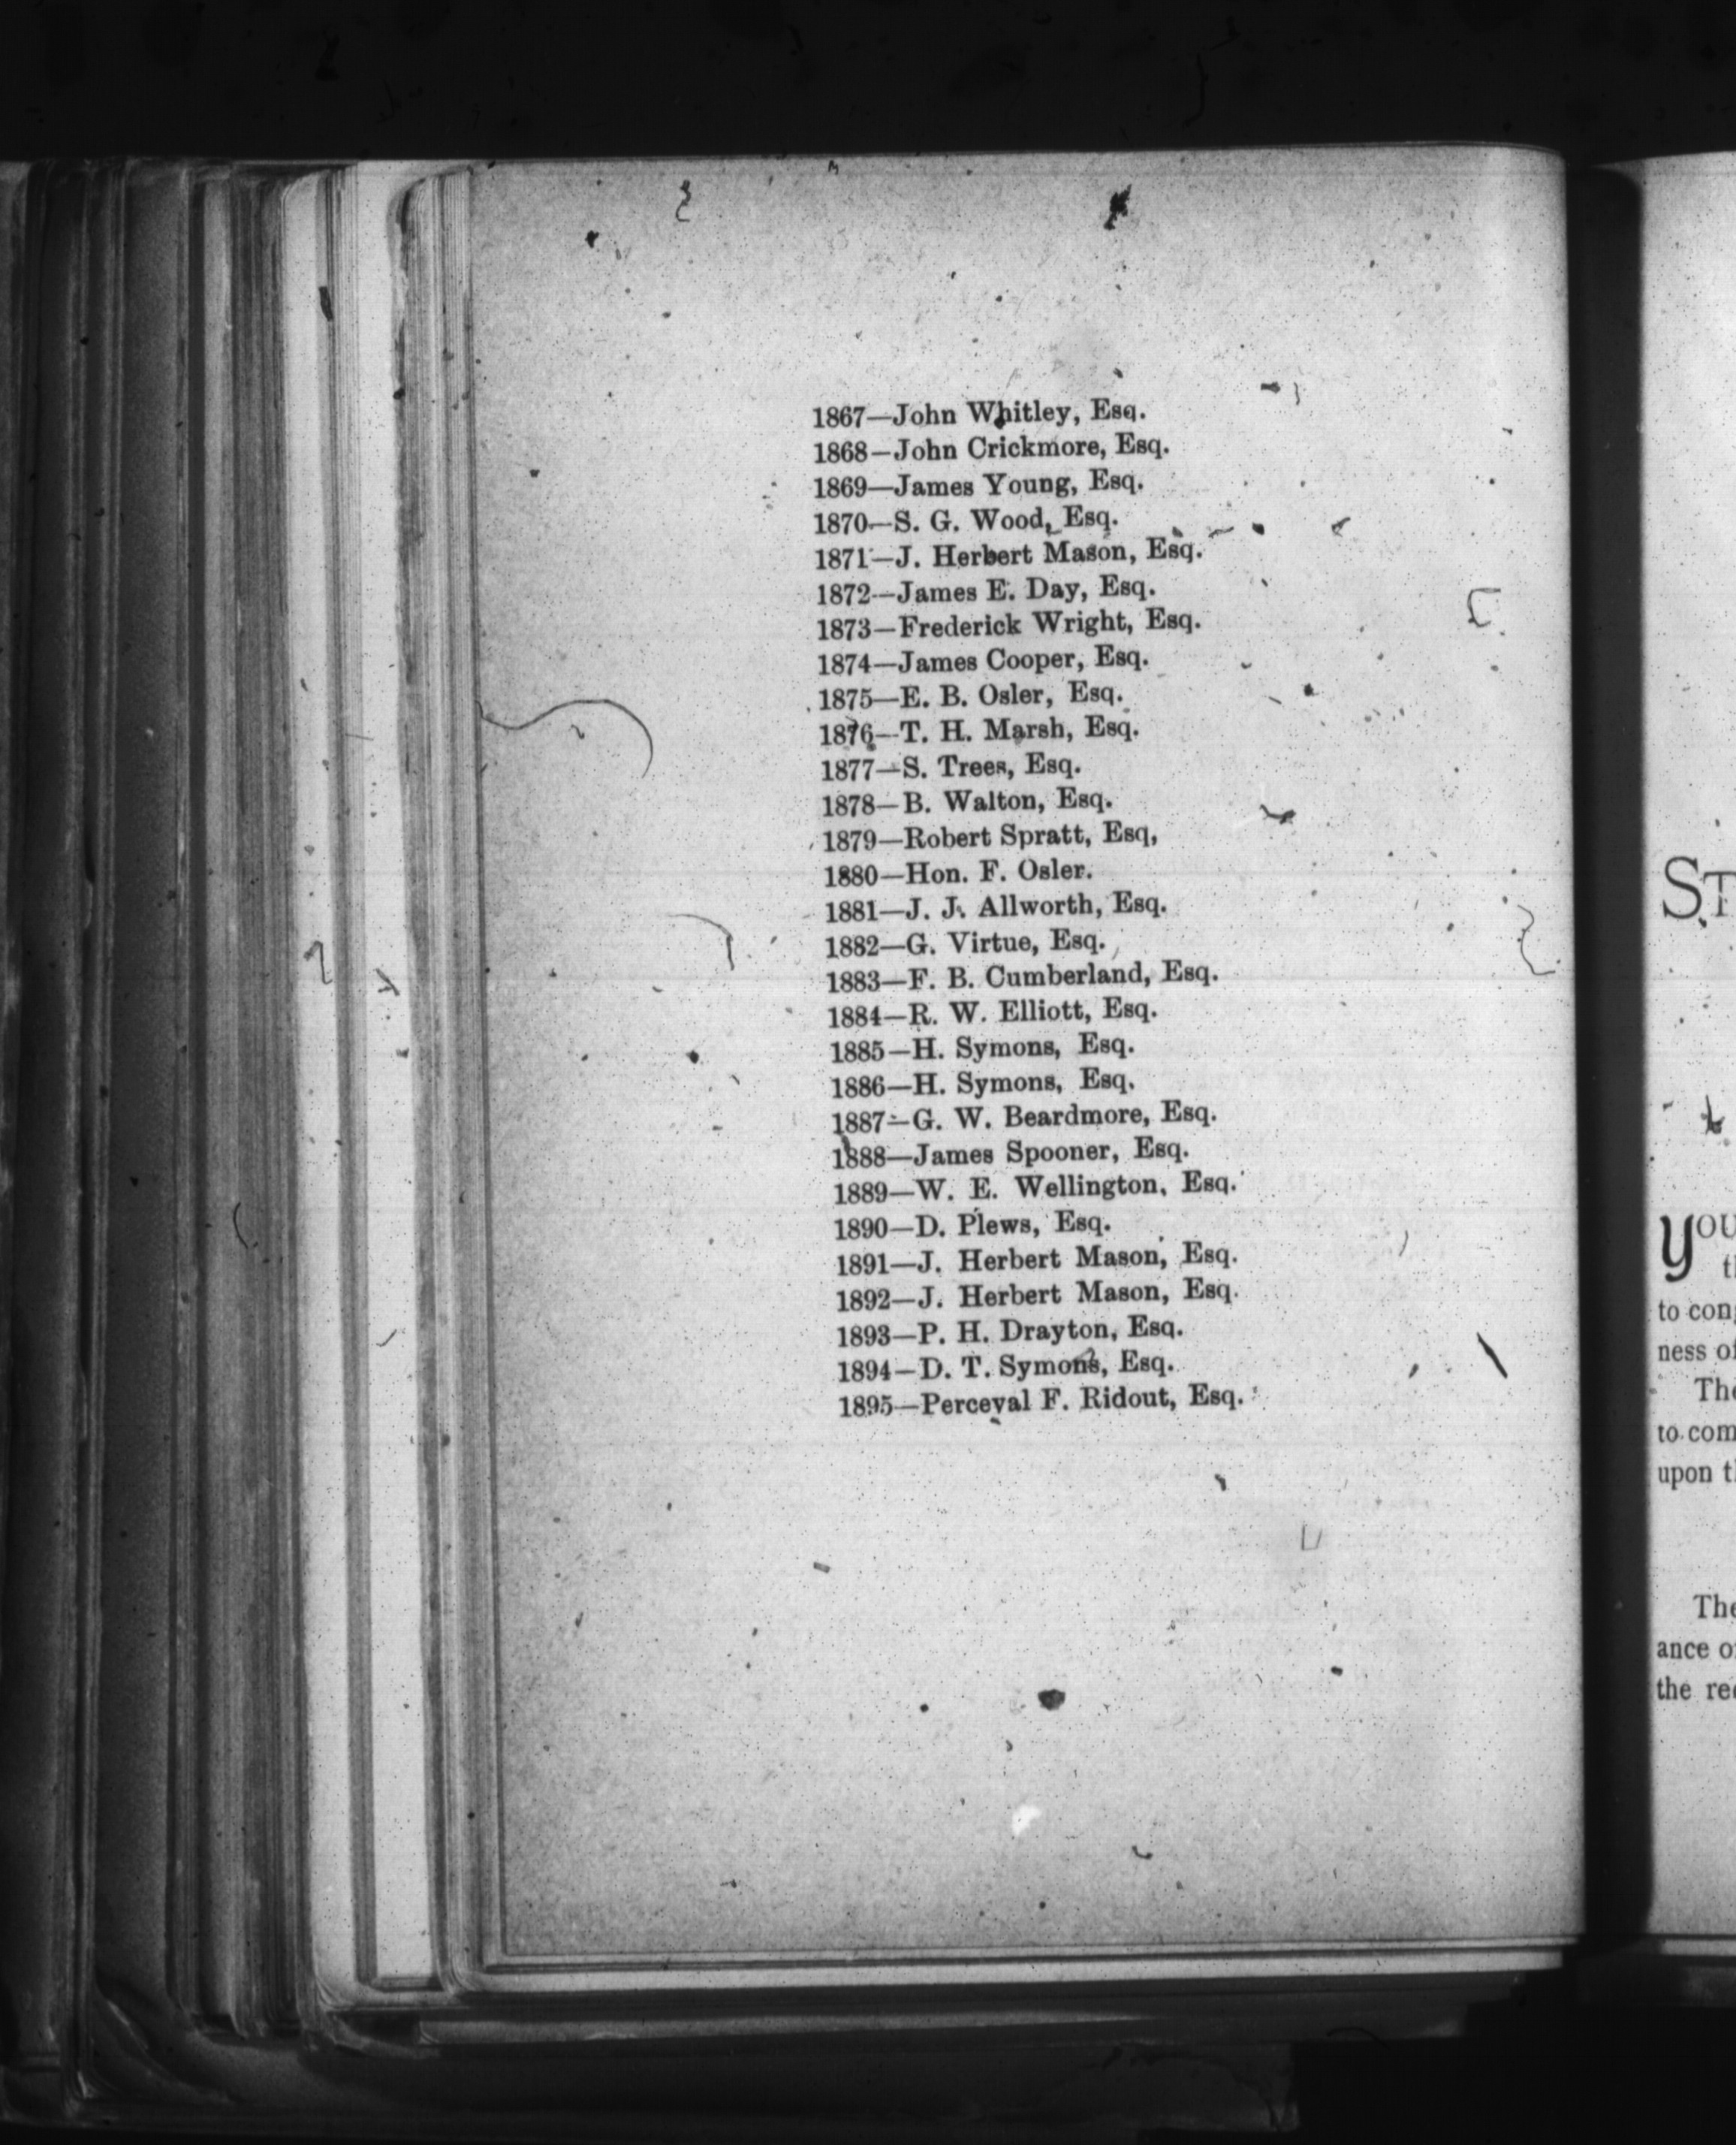 1867—John Whitley, Esq.
1868—John Crickmore, Esq.
1869—James Young, Esq.
1870—S. G. Wood, Esq.
1871—J. Herbert Mason, Esq.
1872—James E. Day, Esq.
1873—Frederick Wright, Esq.
1874—James Cooper, Esq.
1875—E. B. Osler, Esq.
1876—T. H. Marsh, Esq.
1877—S. Trees, Esq.
1878—B. Walton, Esq.
1879—Robert Spratt, Esq,
1880—Hon. F. Osler.
1881—J. J. Allworth, Esq.
1882—G. Virtue, Esq.
1883—F. B. Cumberland, Esq.
1884—R. W. Elliott, Esq.
1885—H. Symons, Esq.
1886—H. Symons, Esq.
1887—G. W. Beardmore, Esq.
1888—James Spooner, Esq.
1889—W. E. Wellington, Esq.
1890—D. Plews, Esq.
1891—J. Herbert Mason, Esq.
1892—J. Herbert Mason, Esq.
1893—P. H. Drayton, Esq.
1894—D. T. Symons, Esq.
1895—Perceval F. Ridout, Esq.
to
ness
The
to
upon
The
ance
the